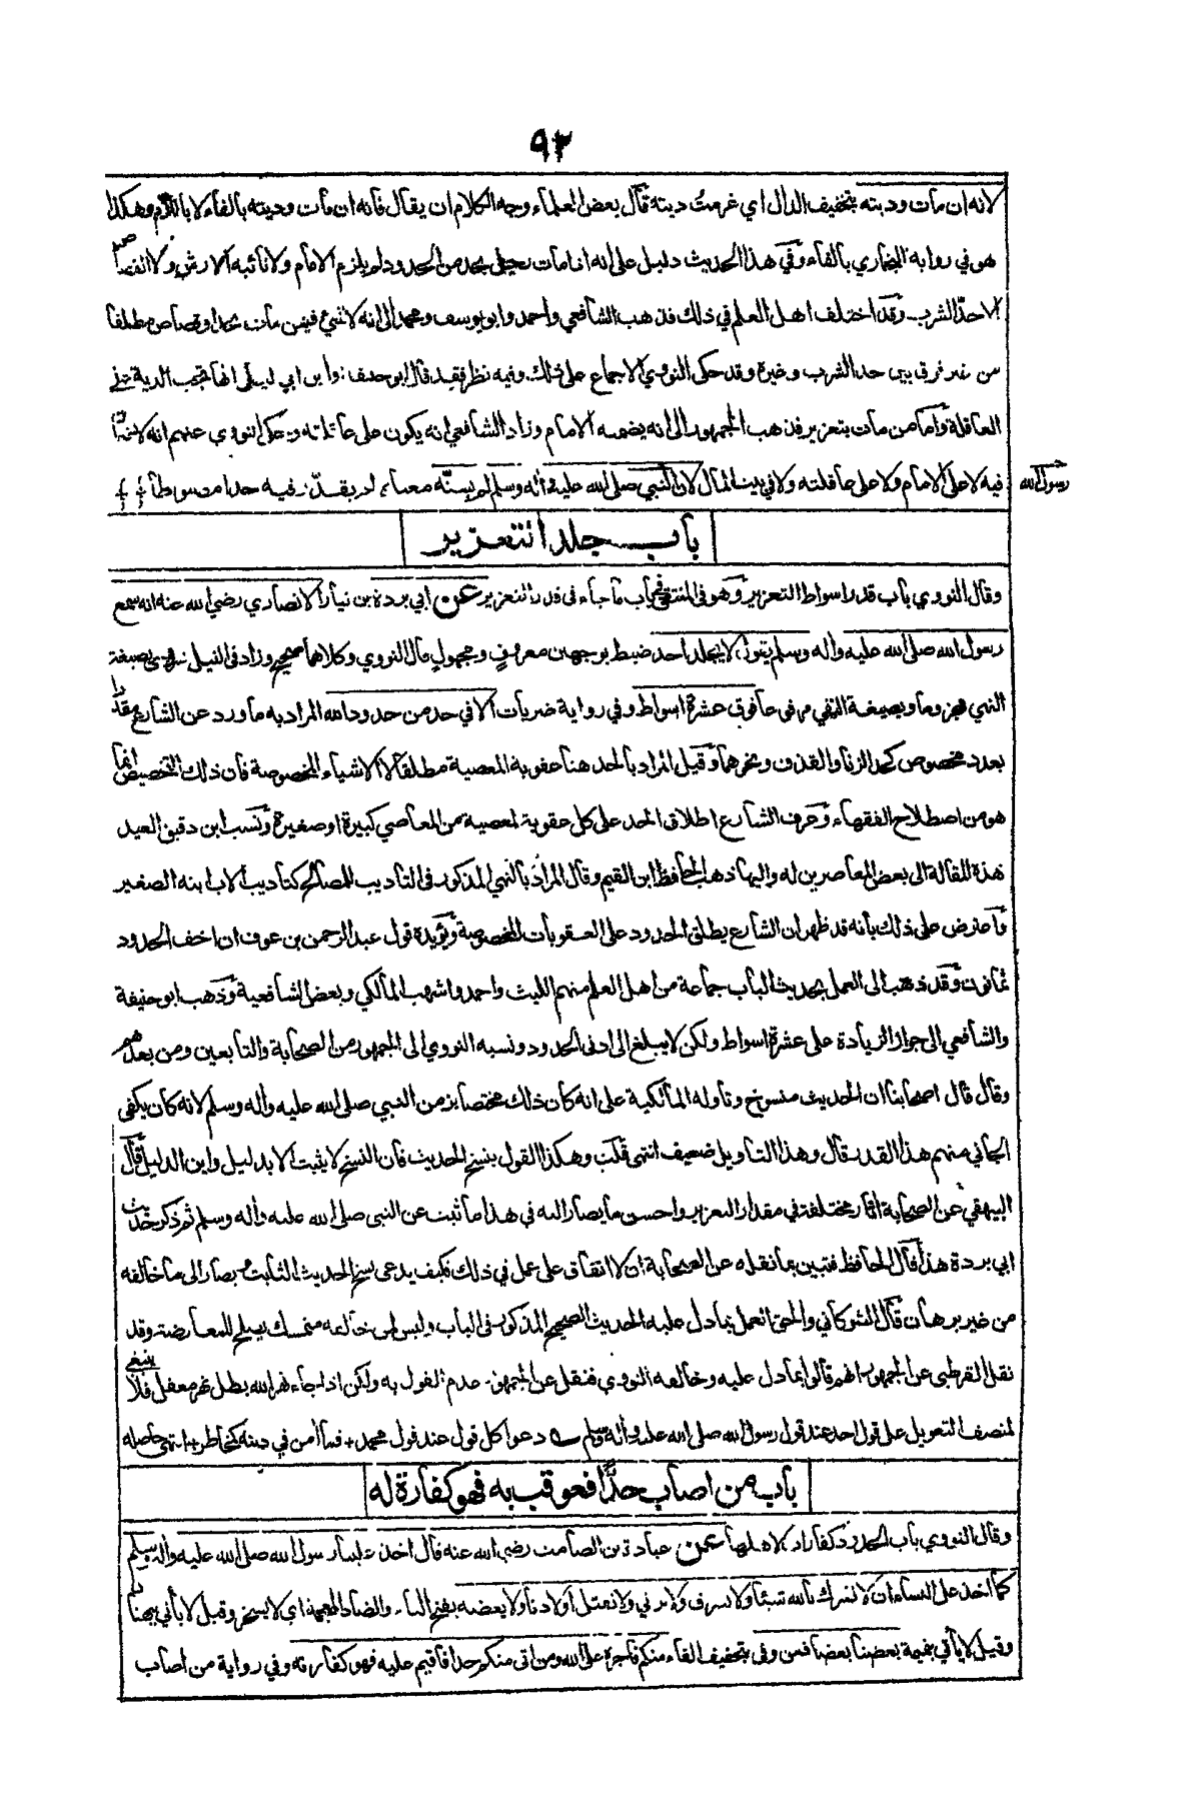 ٩٣
لانه ان مات وديته بتخفيف الدال اي غرمت ديته قال بعض العلماء وجه الكلام ان يقال فانه ان مات وديته بالفاء لا باللام وهكذا
هو في رواية البخاري بالفاء وفي هذا الحديث دليل على انه اذا مات رجل بحد من الحدود لم يلزم الامام ولا نائبه الارش ولا القصاص
الا حد الشرب وقد اختلف اهل العلم في ذلك فذهب الشافعي واحمد وابو يوسف ومحمد الى انه لا شيء فيمن مات بحد او قصاص مطلقا
من غير فرق بين حد الشرب وغيره وقد حكى النووي الاجماع على ذلك وفيه نظر فقد قال ابو حنيفة وابن ابي ليلى انها تجب الدية على
العاقلة واما من مات بتعزير فذهب الجمهور الى انه يضمنه الامام وزاد الشافعي انه يكون على عاقلته وحكى النووي عنهم انه لا ضمان
فيه لا على الامام ولا على عاقلته ولا في بيت المال لان النبي صلى الله عليه وآله وسلم لم يسنه معناه لم يقدر فيه حدا مت سوطا
رسول الله
باب جلد التعزير
وقال النووي باب قدر اسواط التعزير وهو في المنتقى في باب ما جاء في قدر التعزير عن ابي بردة بن نيار الانصاري رضي الله عنه انه سمع
رسول الله صلى الله عليه وآله وسلم يقول لا يجلد احد ضبط بوجهين معروف ومجهول قال النووي وكلاهما صحيح وزاد في النيل بصيغة
النهي مجزوما وبصيغة النفي مرفوعا فوق عشرة اسواط وفي رواية ضربات الا في حد من حدود الله المراد به ما ورد عن الشارع مقدرا
بعدد مخصوص كحد الزنا والقذف ونحوهما وقيل المراد بالحد هنا عقوبة المعصية مطلقا لا الاشياء المخصوصة فان ذلك التخصيص انما
هو من اصطلاح الفقهاء وعرف الشارع اطلاق الحد على كل عقوبة لمعصية من المعاصي كبيرة او صغيرة ونسب ابن دقيق العيد
هذه المقالة الى بعض المعاصرين له واليها ذهب الحافظ ابن القيم وقال المراد بالنهي المذكور في التاديب للمصالح كتاديب الاب ابنه الصغير
واعترض على ذلك بانه قد ظهر ان الشارع يطلق الحدود على العقوبات المخصوصة ويؤيده قول عبد الرحمن بن عوف ان اخف الحدود
ثمانون وقد ذهب الى العمل بحديث الباب جماعة من اهل العلم منهم الليث واحمد واشهب المالكي وبعض الشافعية وذهب ابو حنيفة
والشافعي الى جواز الزيادة على عشرة اسواط ولكن لا يبلغ الى ادنى الحدود ونسبه النووي الى الجمهور من الصحابة والتابعين ومن بعدهم
وقال قال اصحابنا ان الحديث منسوخ وتاوله المالكية على انه كان ذلك مختصا بزمن النبي صلى الله عليه وآله وسلم لانه كان يكفي
الجاني منهم هذا القدر قال وهذا التاويل ضعيف انتهى قلت وهكذا القول بنسخ الحديث فان النسخ لا يثبت الا بدليل واين الدليل قال
البيهقي عن الصحابة اثار مختلفة في مقدار التعزير واحسن ما يصار اليه في هذا ما ثبت عن النبي صلى الله عليه وآله وسلم ثم ذكر حديث
ابي بردة هذا قال الحافظ فتبين بما نقله عن الصحابة ان لا اتفاق على عمل في ذلك فكيف يدعى نسخ الحديث الثابت ويصار الى ما خالفه
من غير برهان قال الشوكاني والحق العمل بما دل عليه الحديث الصحيح المذكور في الباب وليس لمن خالفه متمسك يصلح للمعارضة وقد
نقل القرطبي عن الجمهور انهم قالوا بما دل عليه وخالفه النووي فنقل عن الجمهور عدم القول به ولكن اذا جاء نهر الله بطل نهر معقل فلا ينبغي
لمنصف التعويل على قول احد عند قول رسول الله صلى الله عليه وآله وسلم دعوا كل قول عند قول محمد + فما آمن في دينه كمخاطر + انتهى حاصله
باب من اصاب حدا فعوقب به فهو كفارة له
وقال النووي باب الحدود كفارات لاهلها عن عبادة بن الصامت رضي الله عنه قال اخذ علينا رسول الله صلى الله عليه وآله وسلم
كما اخذ على النساء ان لا نشرك بالله شيئا ولا نسرق ولا نزني ولا نقتل اولادنا ولا يعضه بفتح الياء والضاد المعجمة اي لا يسخر وقيل لا يأتي ببهتان
وقيل لا يأتي بنميمة بعضنا بعضا فمن وفى بتخفيف الفاء منكم فاجره على الله ومن اتى منكم حدا فاقيم عليه فهو كفارته وفي رواية من اصاب